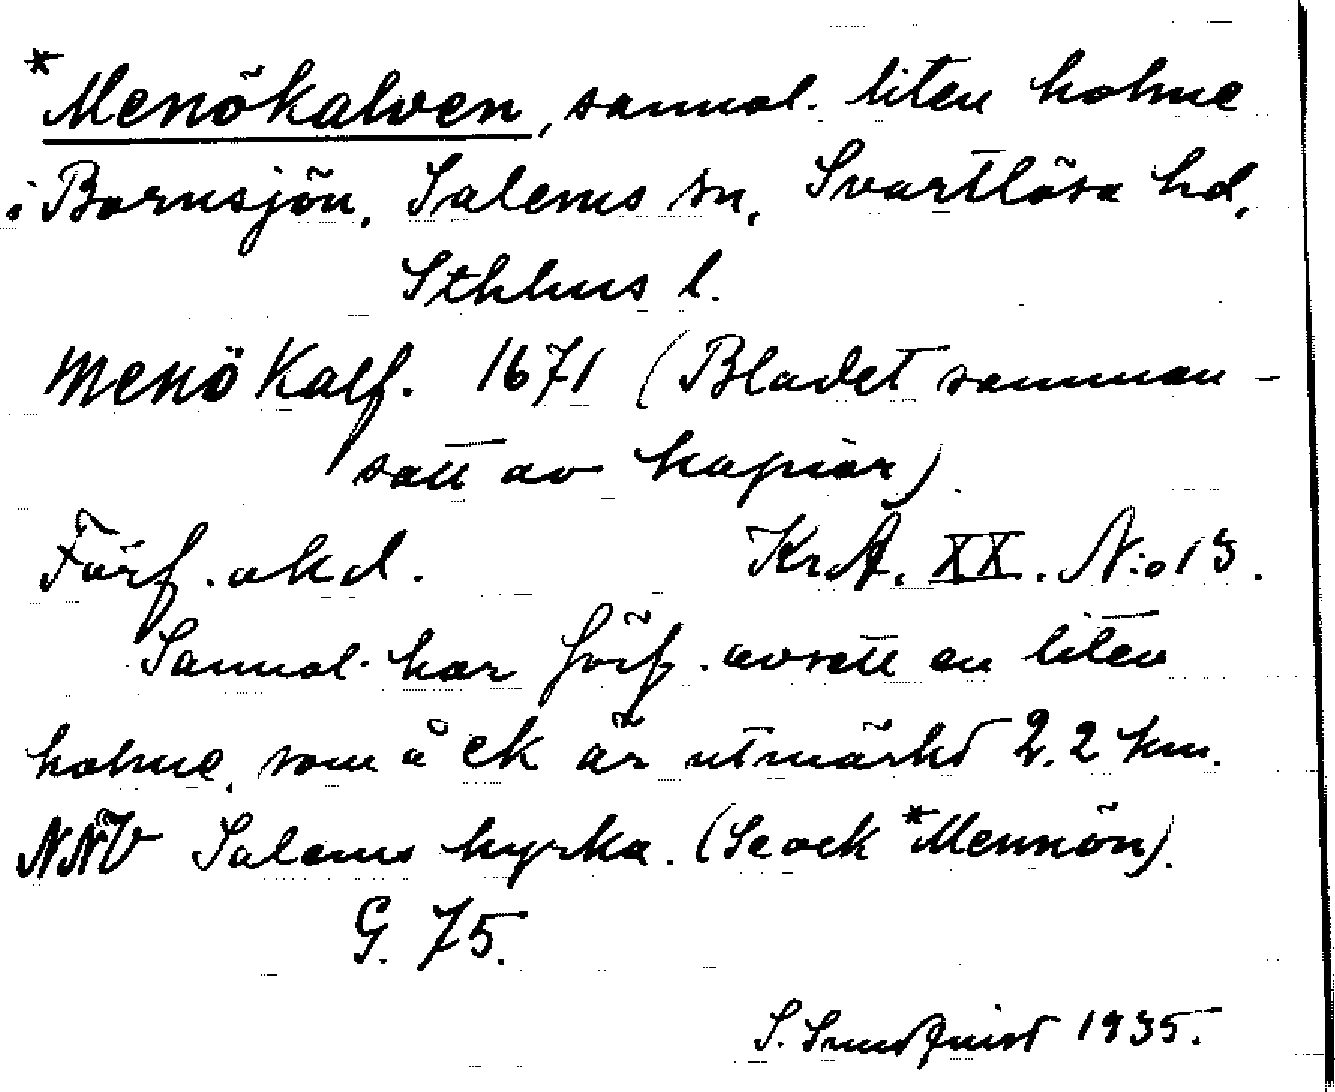 *Menökalven, sannol. liten holme
i Bornsjön, Salems sn, Svartlösa hd,
Sthlms l.
Menö Kalf. 1671 (Bladet samman-
satt av kopior)
Förf. okd. KrA. XX. N:o 13.
Sannol. har förf. avsett en liten
holme, som å ek är utmärkt 2,2 km.
NNV Salems kyrka. (Se ock *Mennön).
G. 75.
S. Sundquist 1935.